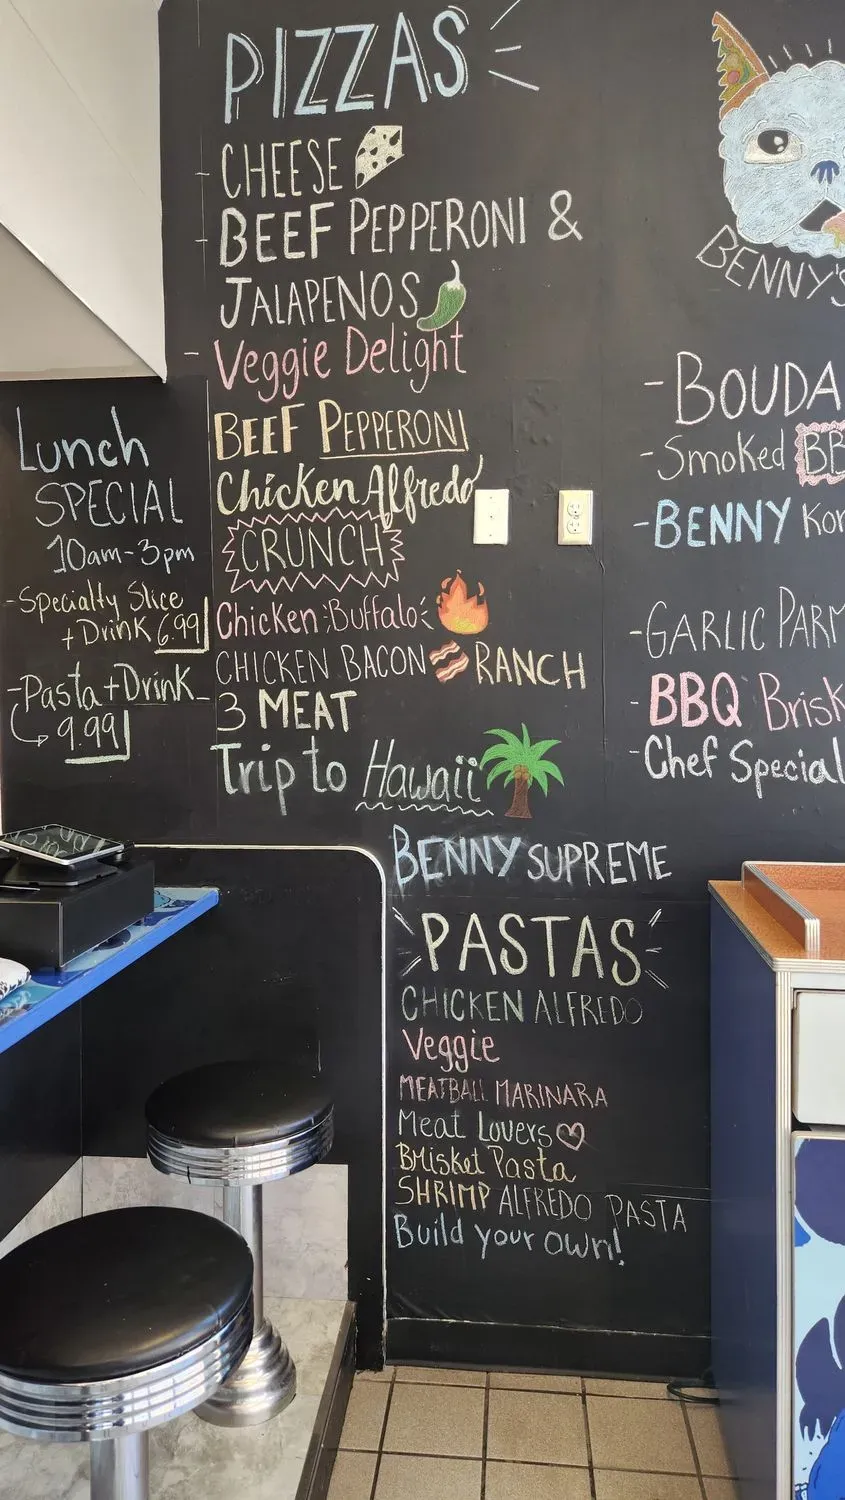 PIZZAS
CHEESE
BEEF PEPPERONI &
JALAPENOS
Veggie Delight
BEEF PEPPERONI
Chicken Alfredo
CRUNCH
Chicken Buffalo
CHICKEN BACON RANCH
3 MEAT
Trip to Hawaii
BENNY SUPREME
PASTAS
CHICKEN ALFREDO
Veggie
MEATBALL MARINARA
Meat Lovers
BRisket Pasta
SHRIMP ALFREDO PASTA
Build your own!
Lunch
SPECIAL
10am-3pm
-Specialty Slice
+ Drink 6.99
-Pasta + Drink
9.99
BENNY'S
-BOUDA
-Smoked BB
-BENNY Kor
-GARLIC PARM
-BBQ Brisk
-Chef Special